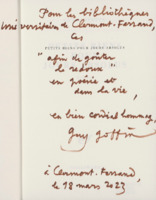 Pour les bibliothèques
universitaires de Clermont-Ferrand,
Ces
PETITS RIENS POUR JOURS ABSOLUS
"afin de goûter
le redoux"
en poésie et
dans la vie,
en bien cordial hommage,
Guy Goffette
à Clermont-Ferrand,
le 18 mars 2023